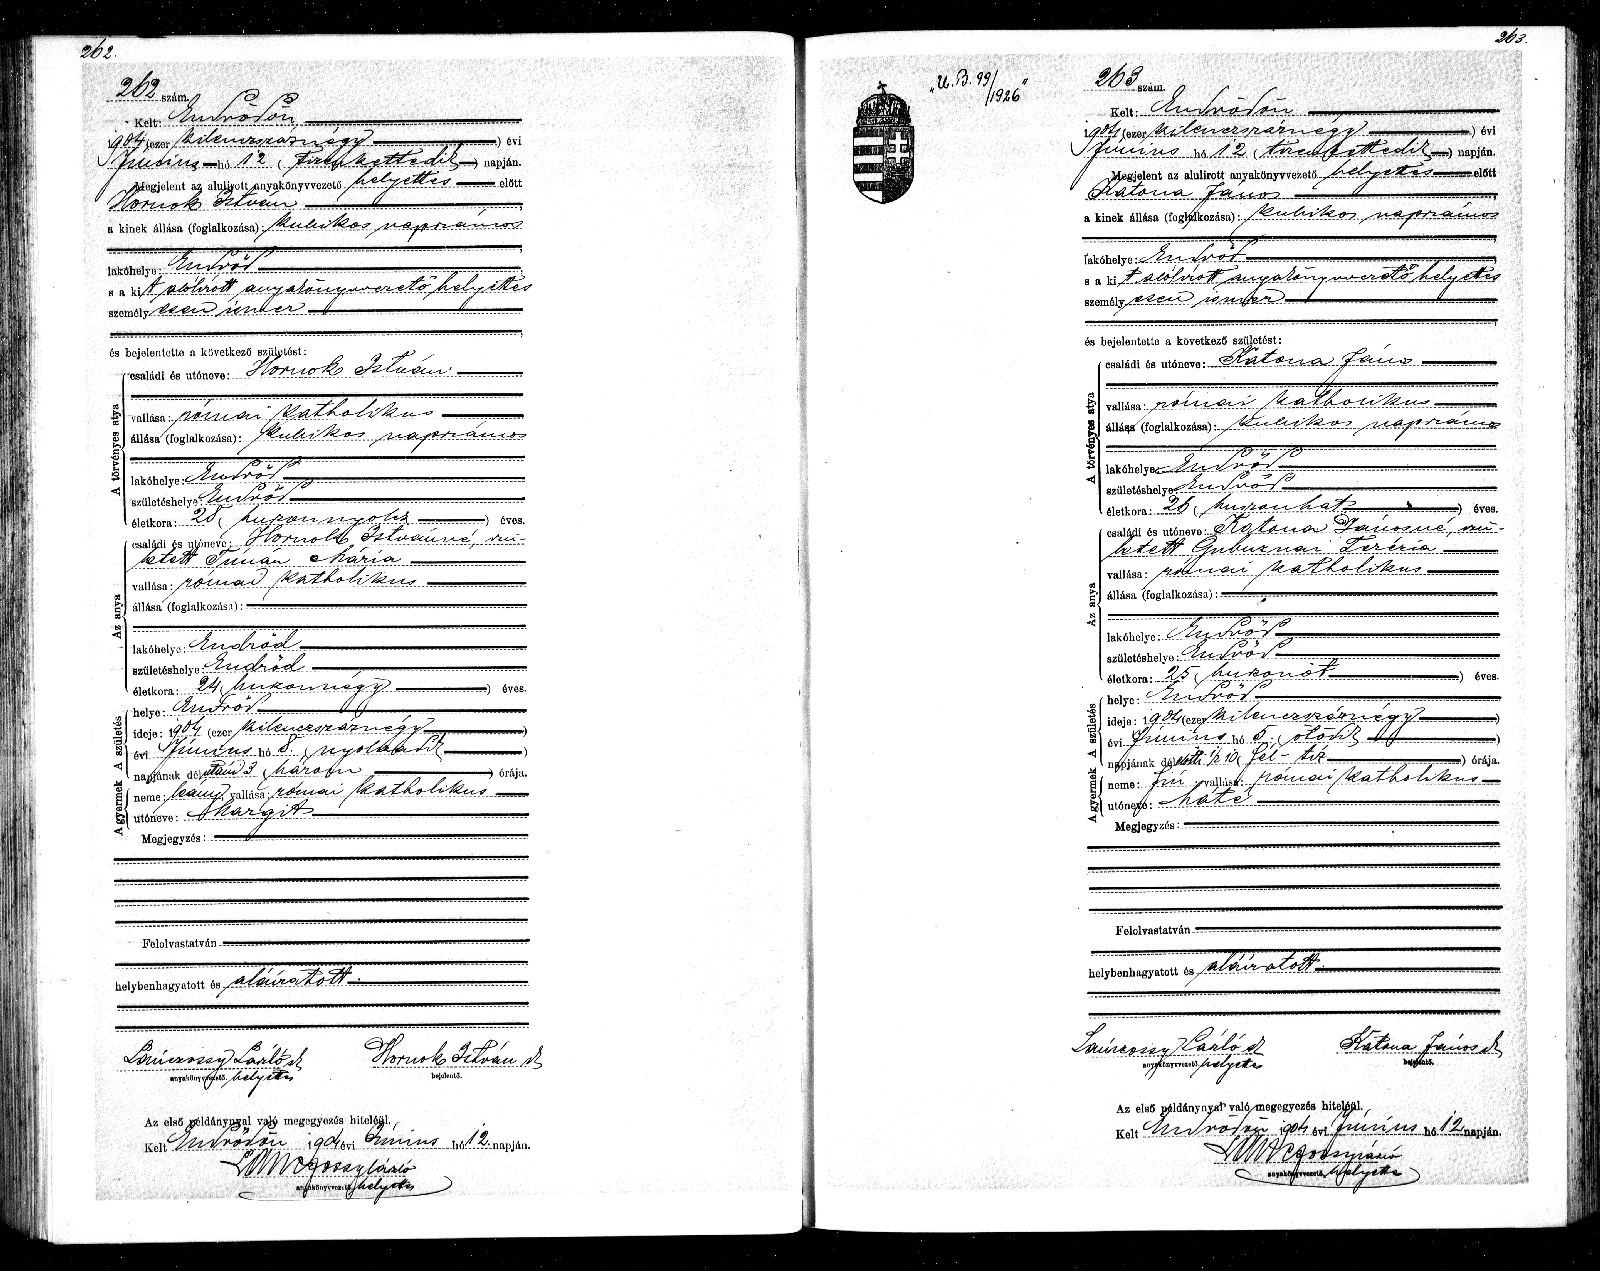 262.
262 szám.
Kelt: Endrődön,
1904 (ezer kilenczszáznégy) évi
Június hó 12 (tizenkettedik) napján.
Megjelent az alulirott anyakönyvvezető helyettes előtt
Hornok István
a kinek állása (foglalkozása): kubikos napszámos
lakóhelye: Endrőd
s a kit alólirott anyakönyvvezető helyettes
személyesen ismer
és bejelentette a következő születést:
A törvényes atya
családi és utóneve: Hornok István
vallása: római katholikus
állása (foglalkozása): kubikos napszámos
lakóhelye: Endrőd
születéshelye: Endrőd
életkora: 28 (huszonnyolcz) éves.
Az anya
családi és utóneve: Hornok Istvánné, szü-
letett Tímár Mária
vallása: római katholikus
állása (foglalkozása):
lakóhelye: Endrőd
születéshelye: Endrőd
életkora: 24 (huszonnégy) éves.
A gyermek A születés
helye: Endrőd
ideje: 1904 (ezer kilenczszáznégy)
évi Június hó 8. (nyolczadik)
napjának délután 3 (három) órája.
neme: leány, vallása: római katholikus
utóneve: Margit
Megjegyzés:
Felolvastatván
helybenhagyatott és aláíratott.
Lánczossy László sk Hornok István sk
anyakönyvvezető. helyettes bejelentő.
Az első példánynyal való megegyezés hiteléül,
Kelt Endrődön 1904 évi Június hó 12 napján.
Lánczossy László
anyakönyvvezető. helyettes
263.
„U. B. 99/1926"
263 szám.
Kelt: Endrődön
1904 (ezer kilenczszáznégy) évi
Június hó 12 (tizenkettedik) napján.
Megjelent az alulirott anyakönyvvezető helyettes előtt
Katona János
a kinek állása (foglalkozása): kubikos napszámos
lakóhelye: Endrőd
s a kit alólirott anyakönyvvezető helyettes
személyesen ismer
és bejelentette a következő születést:
A törvényes atya
családi és utóneve: Katona János
vallása: római katholikus
állása (foglalkozása): kubikos napszámos
lakóhelye: Endrőd
születéshelye: Endrőd
életkora: 26 (huszonhat) éves.
Az anya
családi és utóneve: Katona Jánosné, szü-
letett Gubuznai Terézia
vallása: római katholikus
állása (foglalkozása):
lakóhelye: Endrőd
születéshelye: Endrőd
életkora: 25 (huszonöt) éves.
A gyermek A születés
helye: Endrőd
ideje: 1904 (ezer kilenczszáznégy)
évi Június hó 5. (ötödik)
napjának délelőtt 1/2 10 (fél-tíz) órája.
neme: fiú, vallása: római katholikus
utóneve: Máté
Megjegyzés:
Felolvastatván
helybenhagyatott és aláíratott.
Lánczossy László sk Katona János sk
anyakönyvvezető. helyettes bejelentő.
Az első példánynyal való megegyezés hiteléül,
Kelt Endrődön 1904 évi Június hó 12 napján.
Lánczossy László
anyakönyvvezető. helyettes